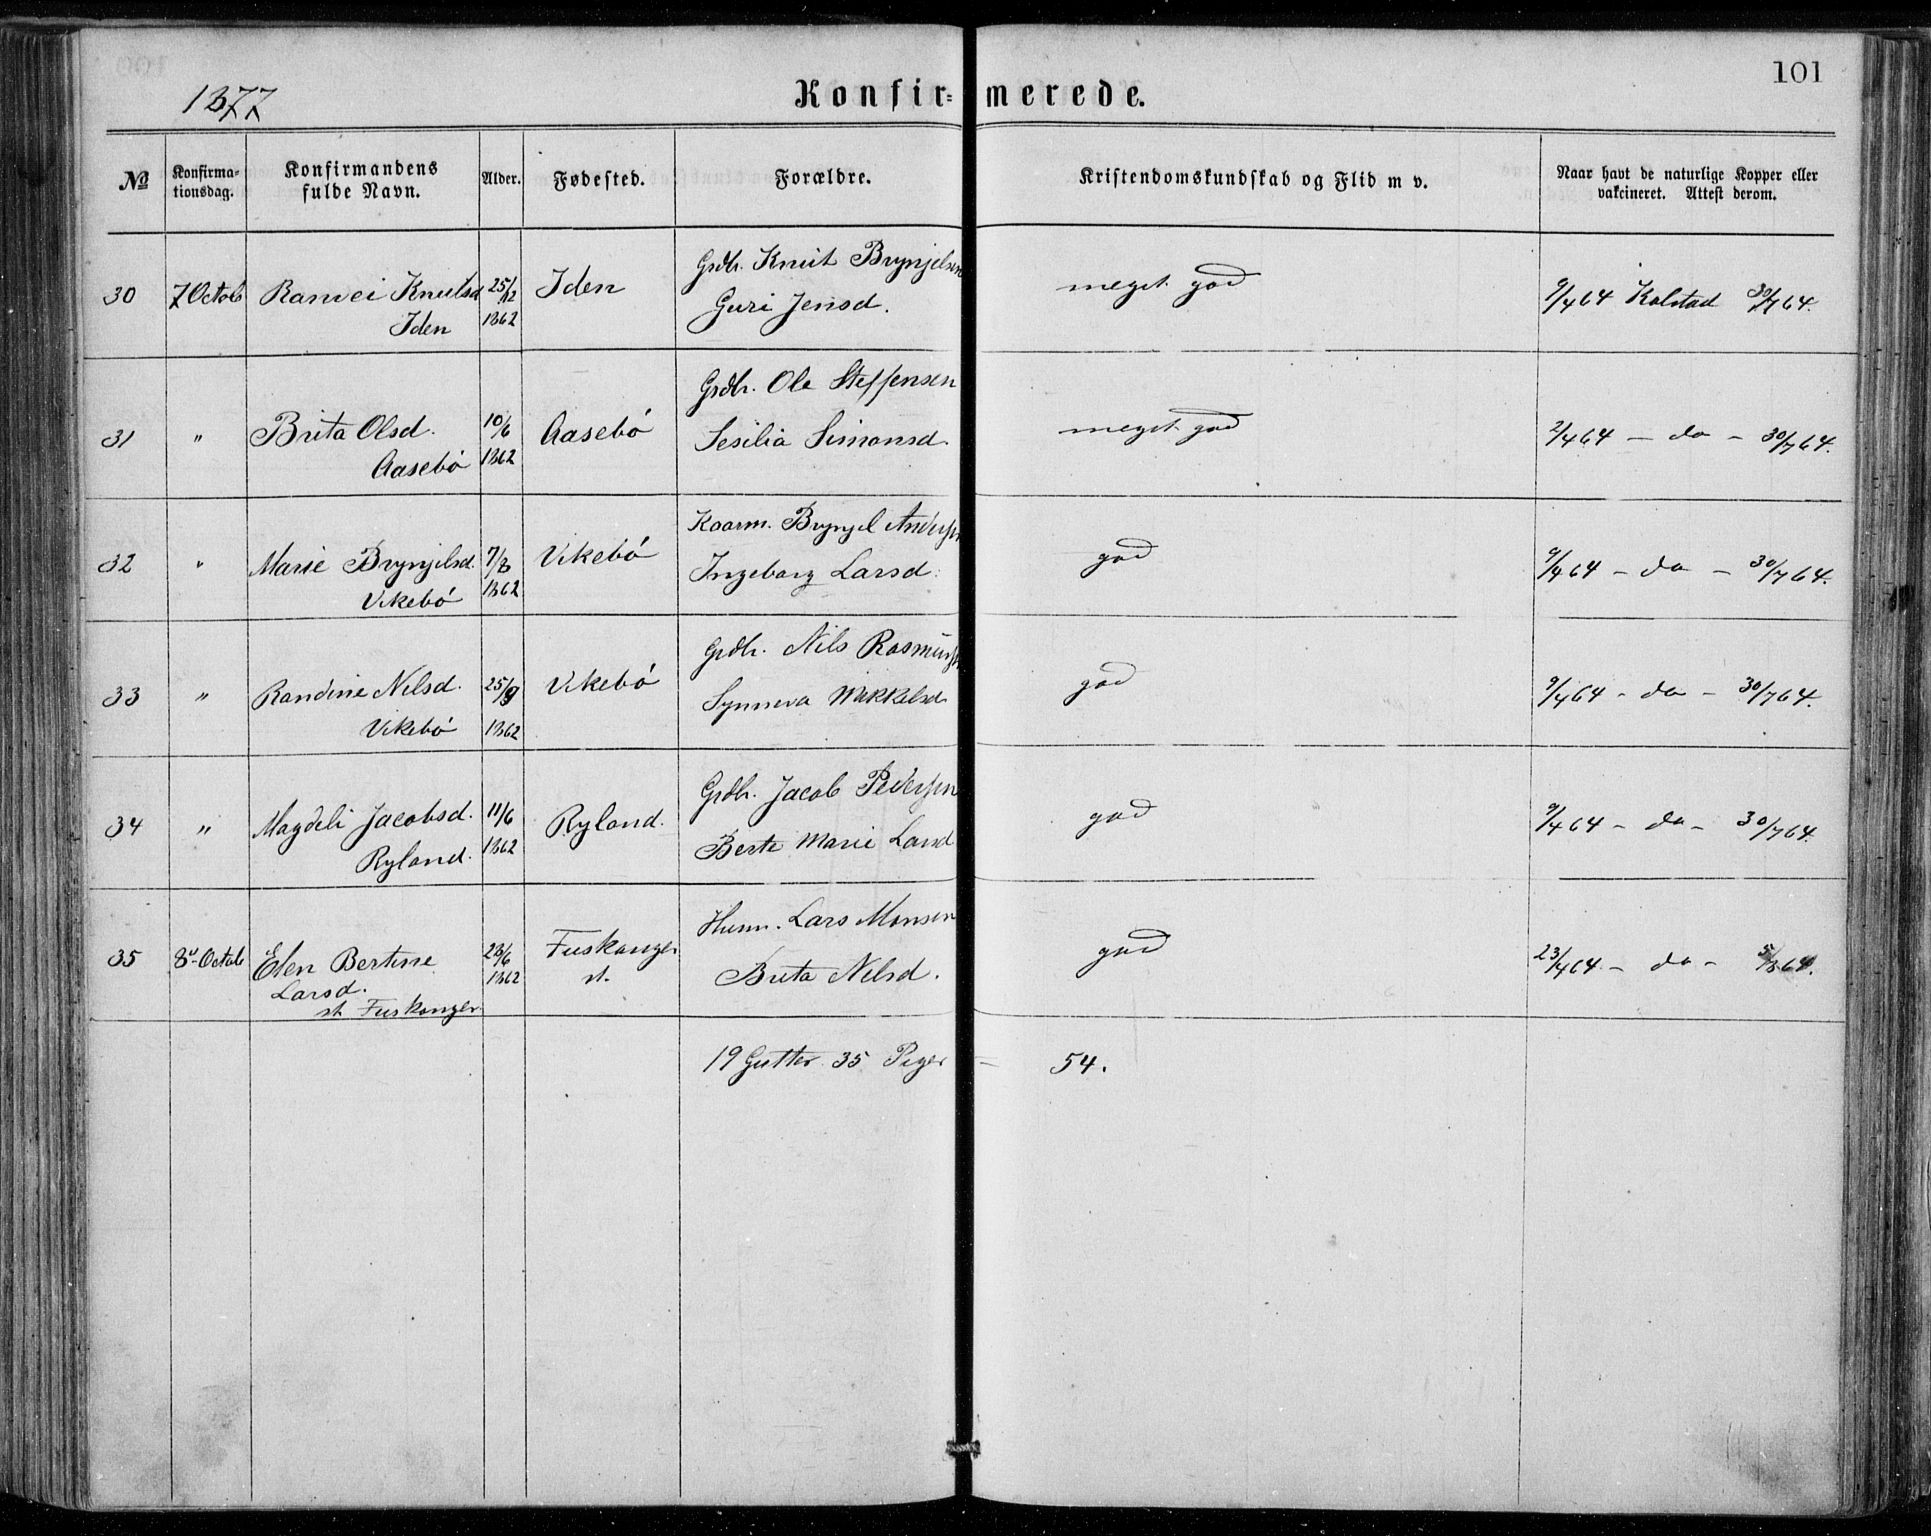 101
1877
Konfirmerede.
№ Konfirmationsdag. Konfirmandens fulde Navn. Alder. Fødested. Forældre. Kristendomskundskab og Flid m v. Naar havt de naturlige Kopper eller vakcineret. Attest derom.
Grdbr. Knut Brynjelsen
30 7 Octob Ranvei Knutsd 25/12 Iden meget god 9/4 64 Kolstad 30/7 64.
Iden 1862 Guri Jensd.
Grdbr. Ole Steffensen
31 " Brita Olsd. 10/6 Aasebø meget god 2/4 64 – do – 30/7 64.
Aasebø 1862 Sesilia Simonsd.
Kaarm. Brynjel Anderss
32 " Marie Brynjelsd. 7/8 Vikebø god 9/4 64 – do – 30/7 64.
Vikebø 1862 Ingeborg Larsd.
Grdbr. Nils Rasmuss
33 " Randine Nilsd. 25/9 Vikebø god 9/4 64 – do – 30/7 64.
Vikebø 1862 Synneva Mikkelsd
Grdbr. Jacob Pederssen
34 " Magdeli Jacobsd. 11/6 Ryland. god 9/4 64 – do – 30/7 64.
Ryland. 1862 Berte Marie Larsd
Husm. Lars Monsen
35 8d Octob Elen Bertine 23/6 Fuskanger god 23/4 64 – do – 5/8 64.
Larsd. 1862 st. Brita Nilsd.
st Fuskanger
19 Gutter 35 Piger – 54.